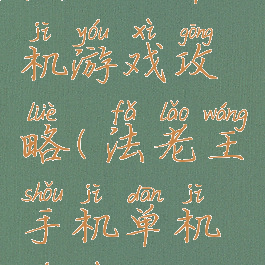 jī yóu xì gōng
机游戏攻
lüè fǎ lǎo wáng
略(法老王
shǒu jī dān jī
手机单机